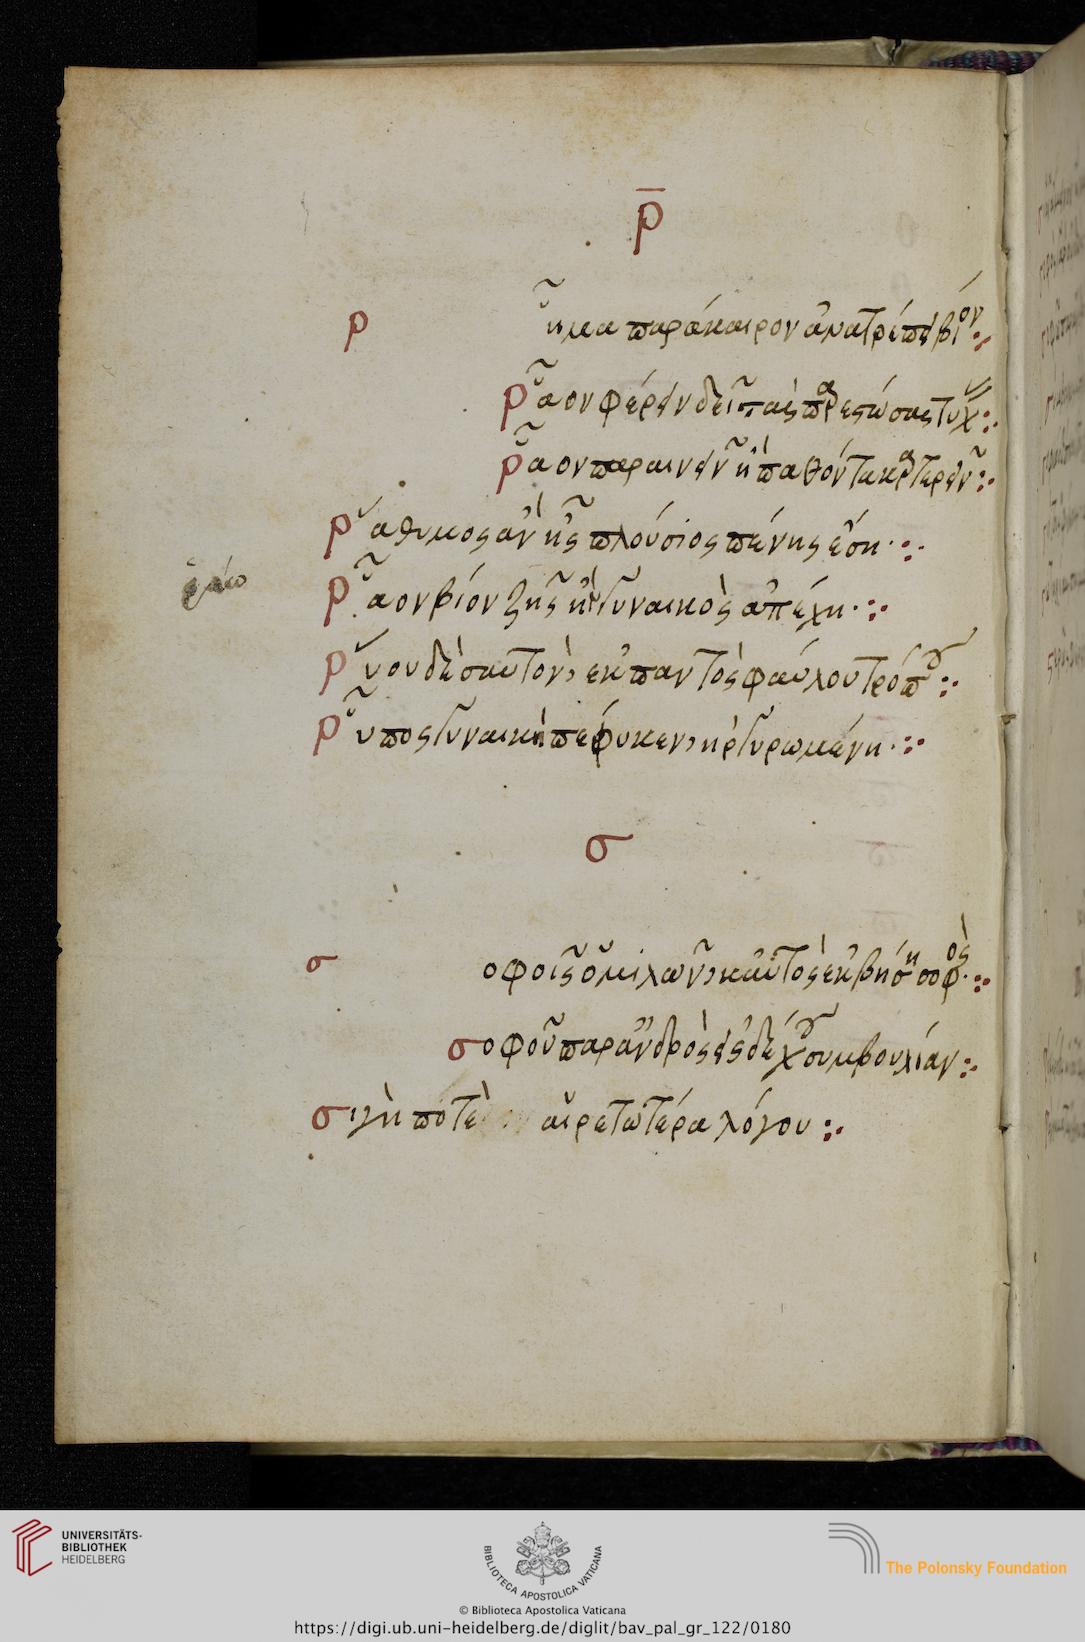 ρ̅
ρ ῆμα παράκαιρον ἀνατρέπει βίον
ρᾶον φέρειν δεῖ τὰς παρεστώσας τύχας
ρᾶον παραινεῖν ἢ παθόντα καρτερεῖν
ράθυμος ἂν ῇς πλούσιος πένης ἔσῃ
ρᾶον βίον ζῇς ἢν γυναικὸς ἀπέχῃ
ρύου δὲ σαυτὸν ἐκ παντὸς φαύλου τρόπου
ρύπος γυνὴ πέφυκεν ἠργυρωμένη
σ
σ οφοῖς ὁμιλῶν καὐτὸς ἐκβήσῃ σοφός
σοφοῦ παρ' ἀνδρὸς εἰσδέχου συμβουλίαν
σιγή ποτε αἱρετωτέρα λόγου
UNIVERSITÄTS-
BIBLIOTHEK
HEIDELBERG
BIBLIOTECA APOSTOLICA VATICANA
The Polonsky Foundation
© Biblioteca Apostolica Vaticana
https://digi.ub.uni-heidelberg.de/diglit/bav_pal_gr_122/0180